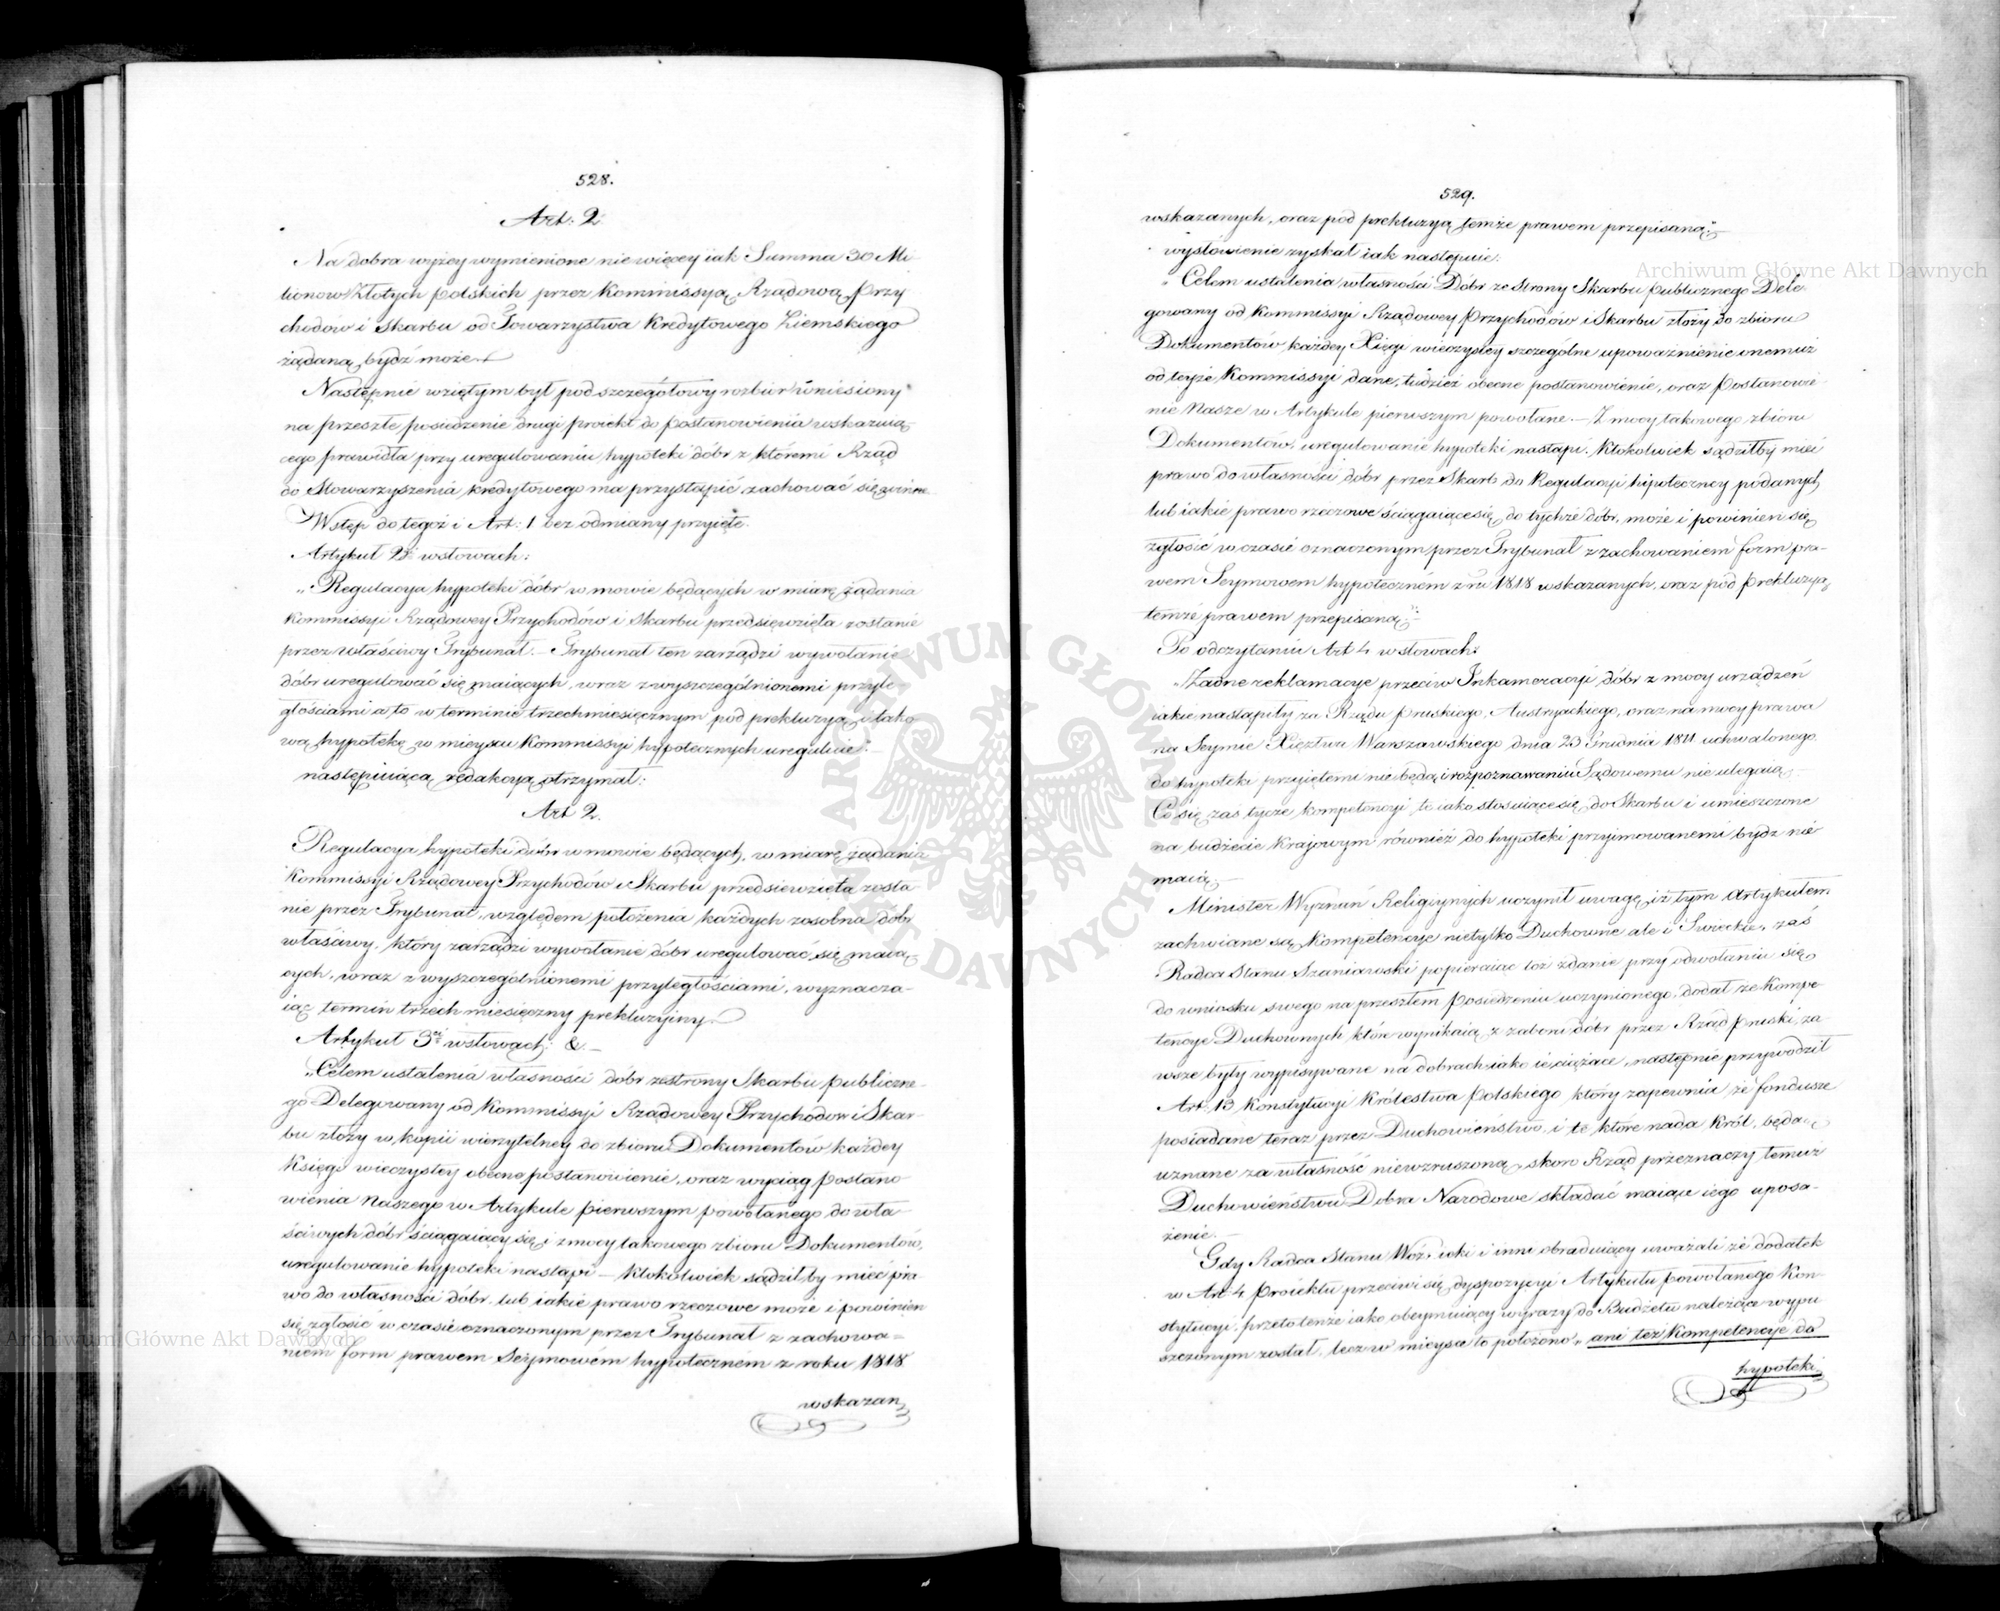 528.
Art: 2.
Na dobra wyżey wymienione nie więcey iak Summa 30 Mi-
lionow Złotych polskich przez Kommissyą Rządową Przy
chodów i Skarbu od Towarzystwa Kredytowego Ziemskiego
żądaną bydź może.
Następnie wziętym był pod szczegółowy rozbiór wniesiony
na przeszłe posiedzenie drugi proiekt do postanowienia wskazuią-
cego prawidła przy uregulowaniu hypoteki dóbr z któremi Rząd
do Stowarzyszenia kredytowego ma przystąpić zachować się winne.
Wstęp do tegoż i Art: 1 bez odmiany przyięte.
Artykuł 2gi w słowach:
„Regulacya hypoteki dóbr w mowie będących w miarę żądania
Kommissyi Rządowey Przychodów i Skarbu przedsięwzięta zostanie
przez właściwy Trybunał. – Trybunał ten zarządzi wywołanie
dóbr uregulować się maiących, wraz z wyszczególnionemi przyle-
głościami a to w terminie trzechmiesięcznym pod prekluzyą i tako
wą hypotekę w mieyscu Kommissyi hypotecznych ureguluie".
następuiącą redakcyą otrzymał:
Art 2.
Regulacya hypoteki dóbr w mowie będących, w miarę żądania
Kommissyi Rządowey Przychodów i Skarbu przedsięwzięta zosta
nie przez Trybunał, względem położenia każdych zosobna dóbr
właściwy, który zarządzi wywołanie dóbr uregulować się maią
cych, wraz z wyszczególnionemi przyległościami, wyznacza-
iąc termin trzech miesięczny prekluzyiny.
Artykuł 3ci w słowach: &.
„Celem ustalenia własności dóbr ze strony Skarbu publiczne-
go Delegowany od Kommissyi Rządowey Przychodow i Skar-
bu złoży w kopii wierzytelney do zbioru Dokumentów każdey
Księgi wieczystey obecne postanowienie, oraz wyciąg postano
wienia Naszego w Artykule pierwszym powołanego do wła-
ściwych dóbr ściągaiący się i z mocy takowego zbioru Dokumentów,
uregulowanie hypoteki nastąpi – Ktokolwiek sądziłby mieć pra
wo do własności dóbr, lub iakie prawo rzeczowe może i powinien
się zgłosić w czasie oznaczonym przez Trybunał z zachowa-
niem form prawem Seymowem hypoteczném z roku 1818
wskazan
529.
wskazanych, oraz pod prekluzyą temże prawem przepisaną":
wysłowienie zyskał iak następuie:
„Celem ustalenia własności Dóbr ze strony Skarbu publicznego Dele-
gowany od Kommissyi Rządowey Przychodów i Skarbu złoży do zbioru
Dokumentów każdey Xięgi wieczystey szczególne upoważnienie onemuż
od teyże Kommissyi dane, tudzież obecne postanowienie, oraz Postanowie
nie Nasze w Artykule pierwszym powołane. – Z mocy takowego zbioru
Dokumentów, uregulowanie hypoteki nastąpi. Ktokolwiek sądziłby mieć
prawo do własności dóbr przez Skarb do Regulacyi hipoteczney podanych,
lub iakie prawo rzeczowe ściągaiące się do tychże dóbr, może i powinien się
zgłosić w czasie oznaczonym przez Trybunał z zachowaniem form pra-
wem Seymowem hypoteczném z ru 1818 wskazanych, oraz pod prekluzyą
temże prawem przepisaną":
Po odczytaniu Art 4 w słowach:
„Żadne reklamacye przeciw Inkameracyi dóbr z mocy urządzeń
iakie nastąpiły za Rządu pruskiego, Austryackiego, oraz na mocy prawa
na Seymie Xięztwa Warszawskiego dnia 23 Grudnia 1811 uchwalonego
do hypoteki przyiętemi nie będą i rozpoznawaniu Sądowemu nie ulegaią.
Co się zaś tycze kompetencyi te iako stosuiące się do Skarbu i umieszczone
na budżecie Krajowym również do hypoteki przyimowanemi bydz nie
maią.
Minister Wyznań Religiynych uczynił uwagę, iż tym Artykułem
zachwiane są Kompetencye nietylko Duchowne ale i Świeckie, zaś
Radca Stanu Szaniawski popieraiąc toż zdanie przy odwołaniu się
do wniosku swego na przeszłem Posiedzeniu uczynionego, dodał że Kompe-
tencye Duchownych które wynikaią z zaboru dóbr przez Rząd pruski, za
wsze były wypisywane na dobrach iako ie ciążące, następnie przywodził
Art: 13 Konstytucyi Królestwa Polskiego który zapewnia że fundusze
posiadane teraz przez Duchowieństwo, i te które nada Król, będą
uznane za własność niewzruszoną, skoro Rząd przeznaczy temuż
Duchowieństwu Dobra Narodowe składać maiące iego uposa-
żenie.
Gdy Radca Stanu Woźnicki i inni obraduiący uważali że dodatek
w Art 4 Proiektu przeciwi się dyspozycyi Artykułu powołanego Kon-
stytucyi, przeto tenże iako obeymuiący wyrazy do Budżetu należące wypu
szczonym został, lecz w mieysce to położono „ani też Kompetencye do
hypoteki
Archiwum Główne Akt Dawnych
Archiwum Główne Akt Dawnych
ARCHIWUM GŁÓWNE AKT DAWNYCH